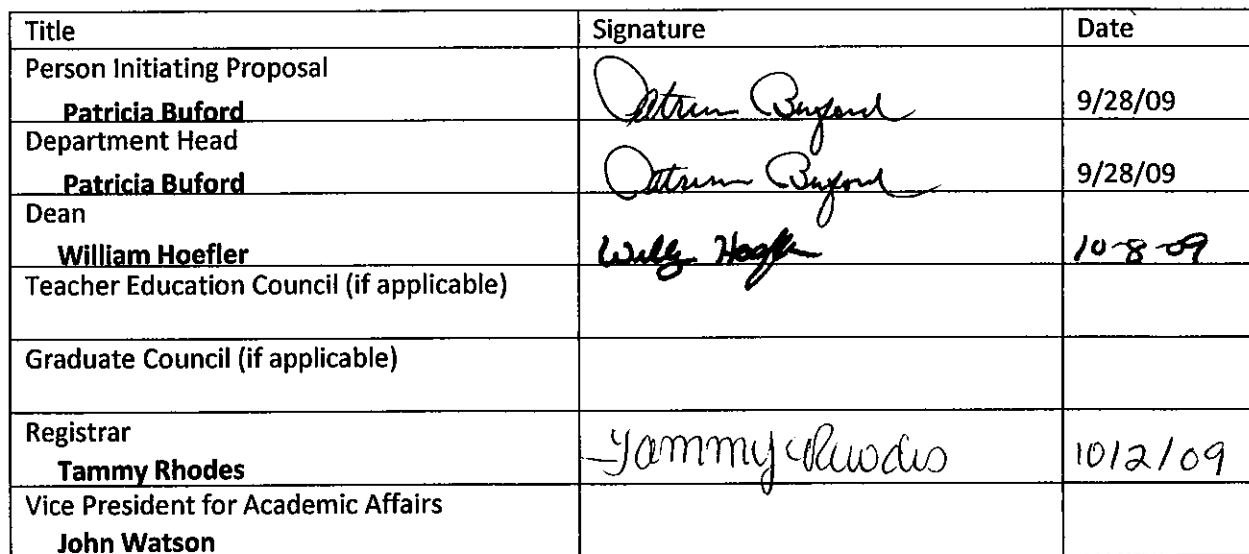 Title Signature Date
Person Initiating Proposal
Patricia Buford Patricia Buford 9/28/09
Department Head
Patricia Buford Patricia Buford 9/28/09
Dean
William Hoefler Willy Hoefler 10-8-09
Teacher Education Council (if applicable)
Graduate Council (if applicable)
Registrar
Tammy Rhodes Tammy Rhodes 10/2/09
Vice President for Academic Affairs
John Watson